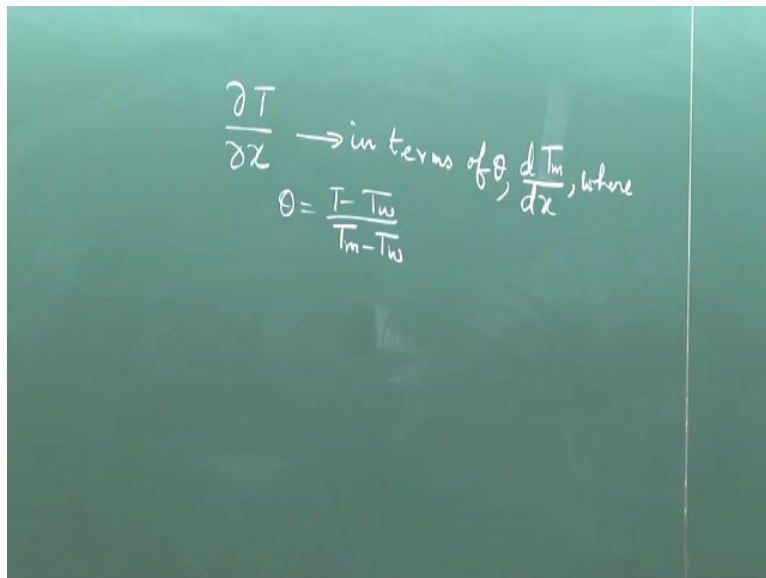 ∂T/∂x → in terms of θ, dTm/dx, where
θ = (T − Tw)/(Tm − Tw)